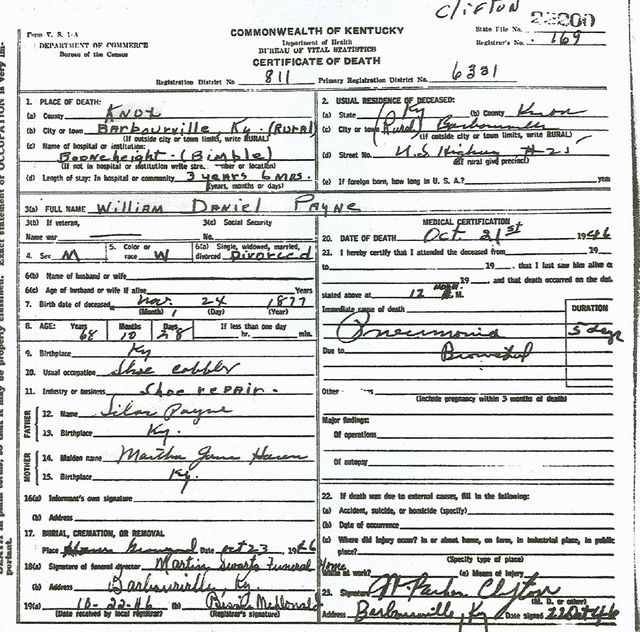 Clifton
Form V. S. 1-A
DEPARTMENT OF COMMERCE
Bureau of the Census
COMMONWEALTH OF KENTUCKY
Department of Health
BUREAU OF VITAL STATISTICS
CERTIFICATE OF DEATH
State File No.
Registrar's No. 169
Registration District No. 811 Primary Registration District No. 6381
1. PLACE OF DEATH:
(a) County Knox
(b) City or town Barbourville Ky. (Rural)
(If outside city or town limits, write RURAL)
(c) Name of hospital or institution:
Booneheight - (Bimble)
(If not in hospital or institution write street number or location)
(d) Length of stay: In hospital or community 3 years 6 mos.
(years, months or days)
2. USUAL RESIDENCE OF DECEASED:
(a) State Ky (b) County Knox
(c) City or town (Rural) Barbourville
(If outside city or town limits, write RURAL)
(d) Street No. U.S. Highway #25
(If rural give precinct)
(e) If foreign born, how long in U. S. A.? years
3(a) FULL NAME William Daniel Payne
3(b) If veteran, Name war
3(c) Social Security No.
4. Sex M 5. Color or race W 6(a) Single, widowed, married, divorced Divorced
6(b) Name of husband or wife
6(c) Age of husband or wife if alive Years
7. Birth date of deceased Nov. 24 1877
(Month) (Day) (Year)
8. AGE: Years 68 Months 10 Days 28 If less than one day hr. min.
9. Birthplace Ky
10. Usual occupation Shoe cobbler
11. Industry or business Shoe repair.
FATHER
12. Name Silas Payne
13. Birthplace Ky.
MOTHER
14. Maiden name Martha Jane
15. Birthplace Ky.
16(a) Informant's own signature
(b) Address
17. BURIAL, CREMATION, OR REMOVAL
Place Date Oct 23 1946
18(a) Signature of funeral director Martin Swarts Funeral Home
(b) Address Barbourville, Ky.
19(a) 10-22-46 (b) Bessie McDonald
(Date received by local registrar) (Registrar's signature)
MEDICAL CERTIFICATION
20. DATE OF DEATH Oct. 21st 1946
21. I hereby certify that I attended the deceased from 19
to 19 , that I last saw him alive on
19 , and that death occurred on the date
stated above at 12 noon M.
Immediate cause of death DURATION
Pneumonia 5 days
Due to Bronchial
Other
(Include pregnancy within 3 months of death)
Major findings:
Of operations
Of autopsy
22. If death was due to external causes, fill in the following:
(a) Accident, suicide, or homicide (specify)
(b) Date of occurrence
(c) Where did injury occur? In or about home, on farm, in industrial place, in public
place?
(Specify type of place)
While at work? (e) Means of injury
23. Signature W. Parker Clifton
(M. D. or other)
Address Barbourville, Ky Date signed 22 Oct 46